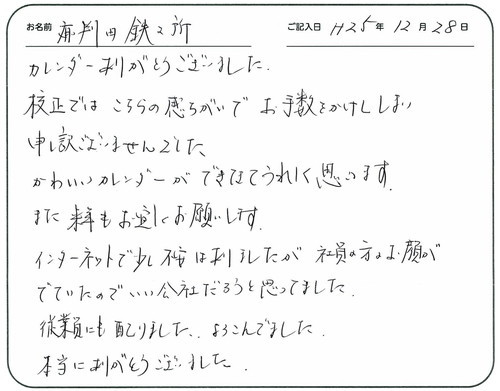 お名前 有判田鉄工所 ご記入日 H25年12月28日
カレンダーありがとうございました.
校正では こちらの感ちがいで お手数をかけてしまい
申し訳ございませんでした、
かわいいカレンダーが できましてうれしく思います.
また 来年もお宜しくお願いします.
インターネットで少し不安はありましたが 社員の方のお顔が
でていたので いい会社だろうと思ってました.
従業員にも 配りました、よろこんでました.
本当にありがとうございました.